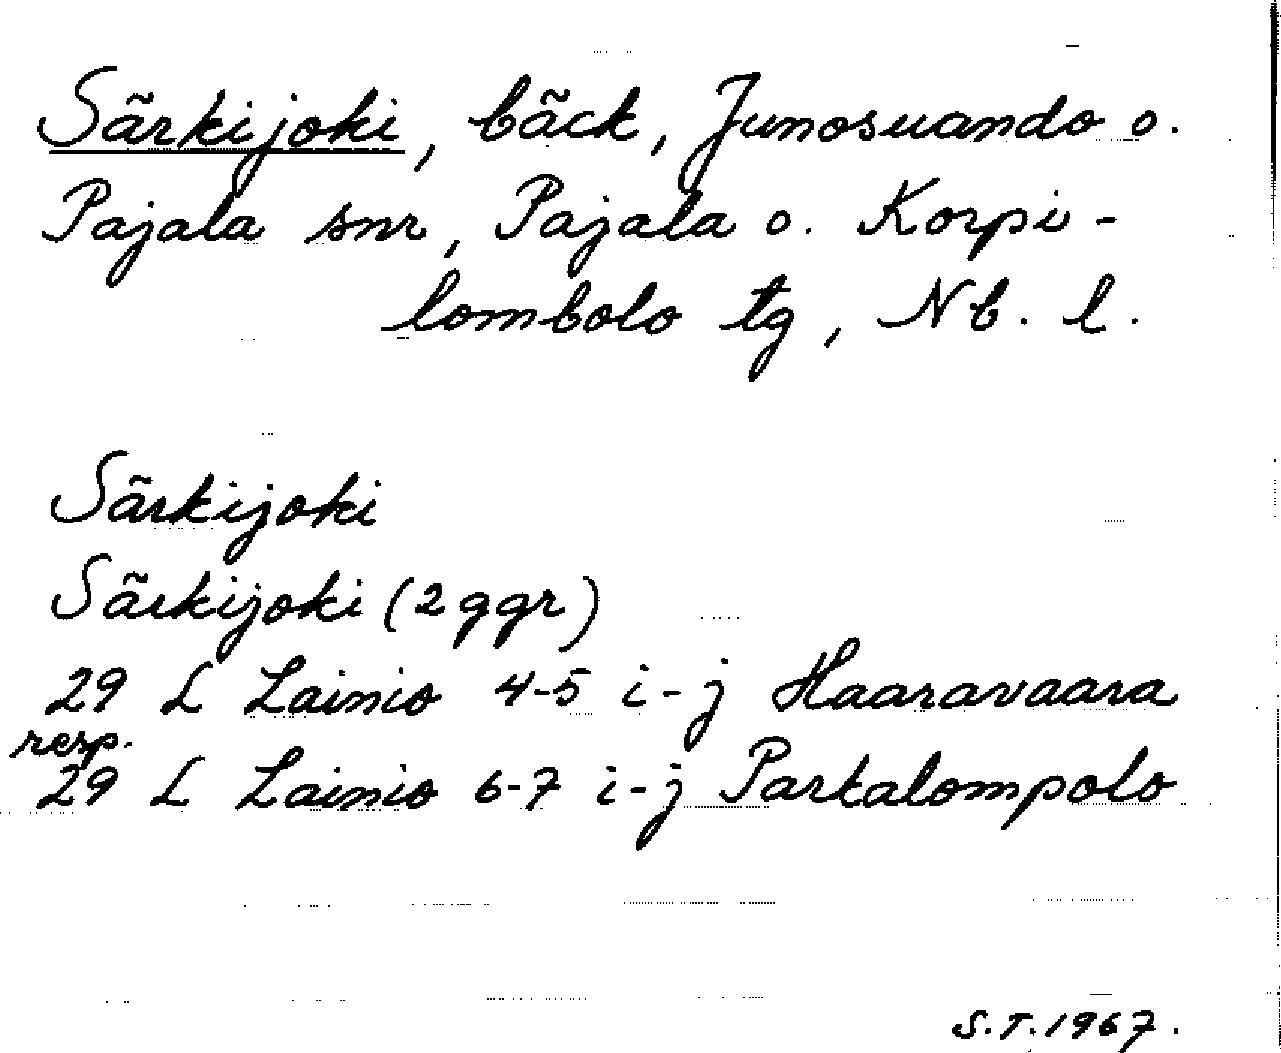 Särkijoki, bäck, Junosuando o.
Pajala snr, Pajala o. Korpi-
lombolo tg, Nb. l.
Särkijoki
Särkijoki (2 ggr)
29 L Lainio 4-5 i-j Haaravaara
resp.
29 L Lainio 6-7 i-j Parkalompolo
S.T. 1967.